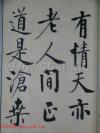 有情天亦
老人間正
道是滄桑